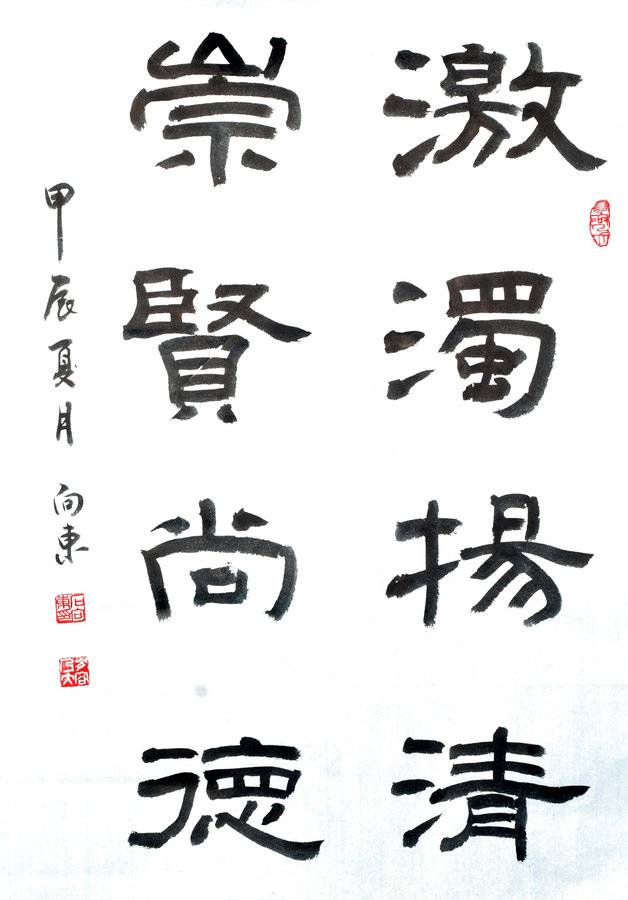 激濁揚清
崇賢尚德
甲辰夏月 向東